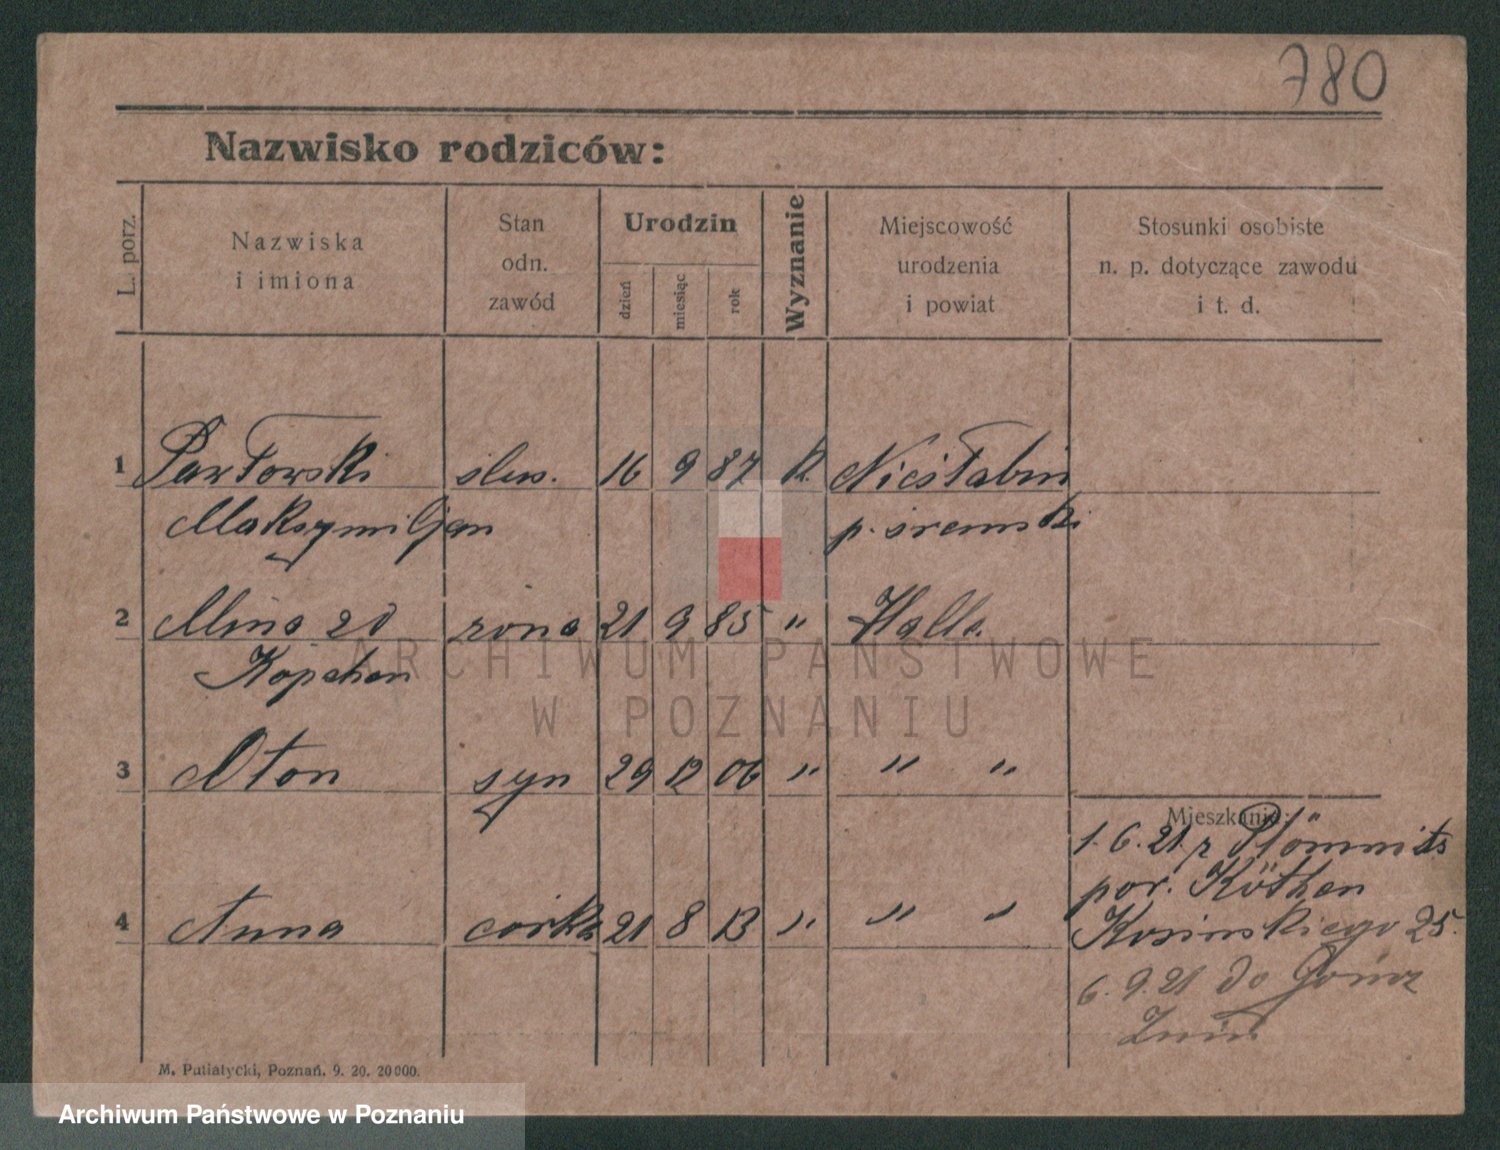 780
Nazwisko rodziców:
L. porz.
Nazwiska
i imiona
Stan
odn.
zawód
Urodzin
dzień
miesiąc
rok
Wyznanie
Miejscowość
urodzenia
i powiat
Stosunki osobiste
n. p. dotyczące zawodu
i t. d.
1 Pawłowski ślus. 16 9 87 k. Niesłabin
Maksymiljan p. śremski
2 Mina zd żona 21 9 85 " Halle
Kopchen
3 Oton syn 29 12 06 " " "
Mieszkanie:
1.6.21 z Plömnitz
por. Köthen
4 Anna córka 21 8 13 " " "
Kosińskiego 25.
6.9.21 do
Żnin
M. Putiatycki, Poznań. 9. 20. 20000.
ARCHIWUM PAŃSTWOWE
W POZNANIU
Archiwum Państwowe w Poznaniu